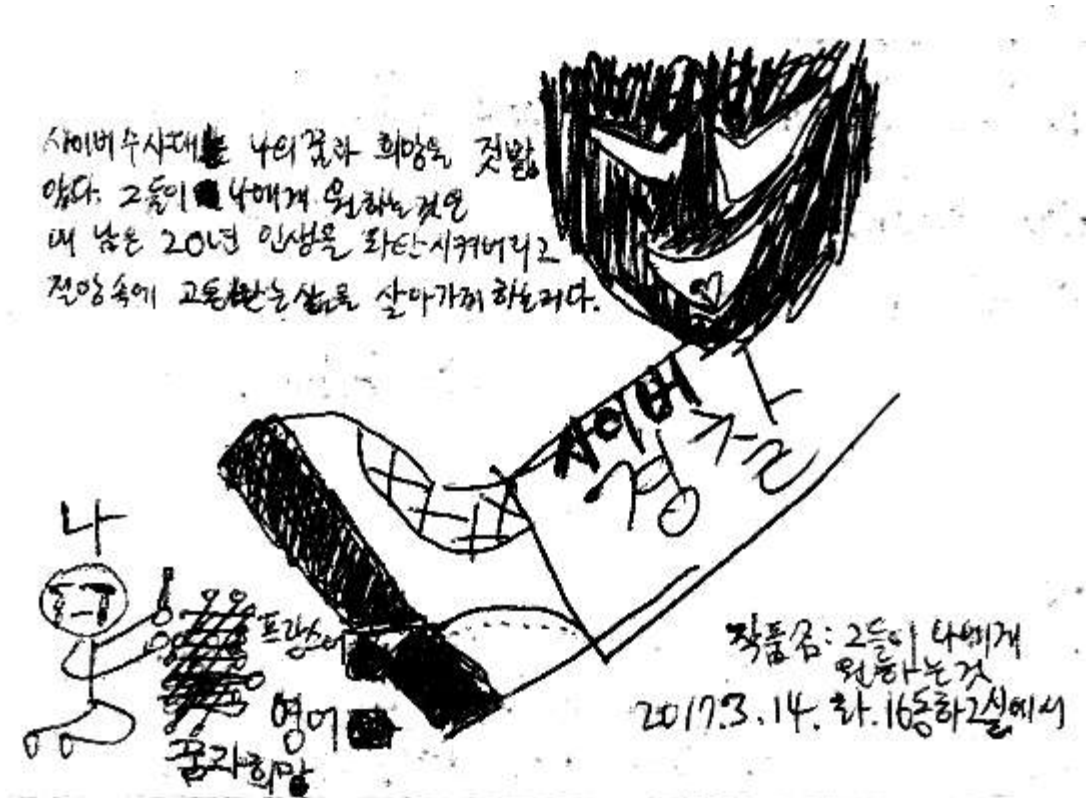 사이버수사대는 나의 꿈과 희망을 짓밟
았다. 그들이 나에게 원하는 것은
내 남은 20년 인생을 파탄시켜버리고
절망속에 고통받는 삶을 살아가게 하는거다.
사이버
경찰
나
프랑스어
영어
꿈과희망
작품명: 그들이 나에게
원하는 것
2017.3.14. 화. 16동하2실에서